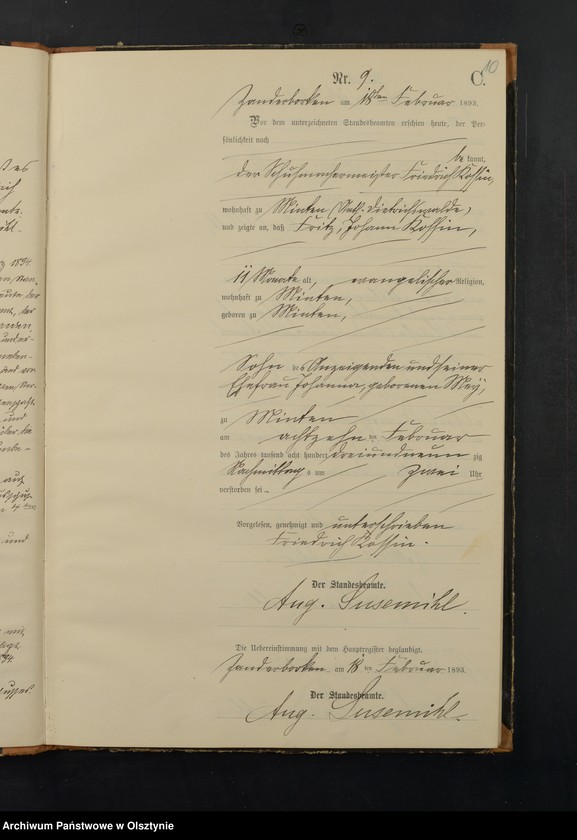 10
Nr. 9. C.
Zanderborken am 18ten Februar 1893.
Vor dem unterzeichneten Standesbeamten erschien heute, der Per-
sönlichkeit nach
be kannt,
der Schuhmachermeister Friedrich Kossin,
wohnhaft zu Minten, Dietrichswalde,
und zeigte an, daß Fritz, Johann Kossin,
11 Monate alt, evangelischer Religion,
wohnhaft zu Minten,
geboren zu Minten,
Sohn des Anzeigenden und seiner
Ehefrau Johanna, geborenen Mey,
zu Minten
am achtzehnten Februar
des Jahres tausend acht hundert dreiundneunzig
Nachmittags um zwei Uhr
verstorben sei
Vorgelesen, genehmigt und unterschrieben
Friedrich Kossin.
Der Standesbeamte.
Aug. Susemihl.
Die Uebereinstimmung mit dem Hauptregister beglaubigt.
Zanderborken am 18ten Februar 1893.
Der Standesbeamte.
Aug. Susemihl.
Archiwum Państwowe w Olsztynie